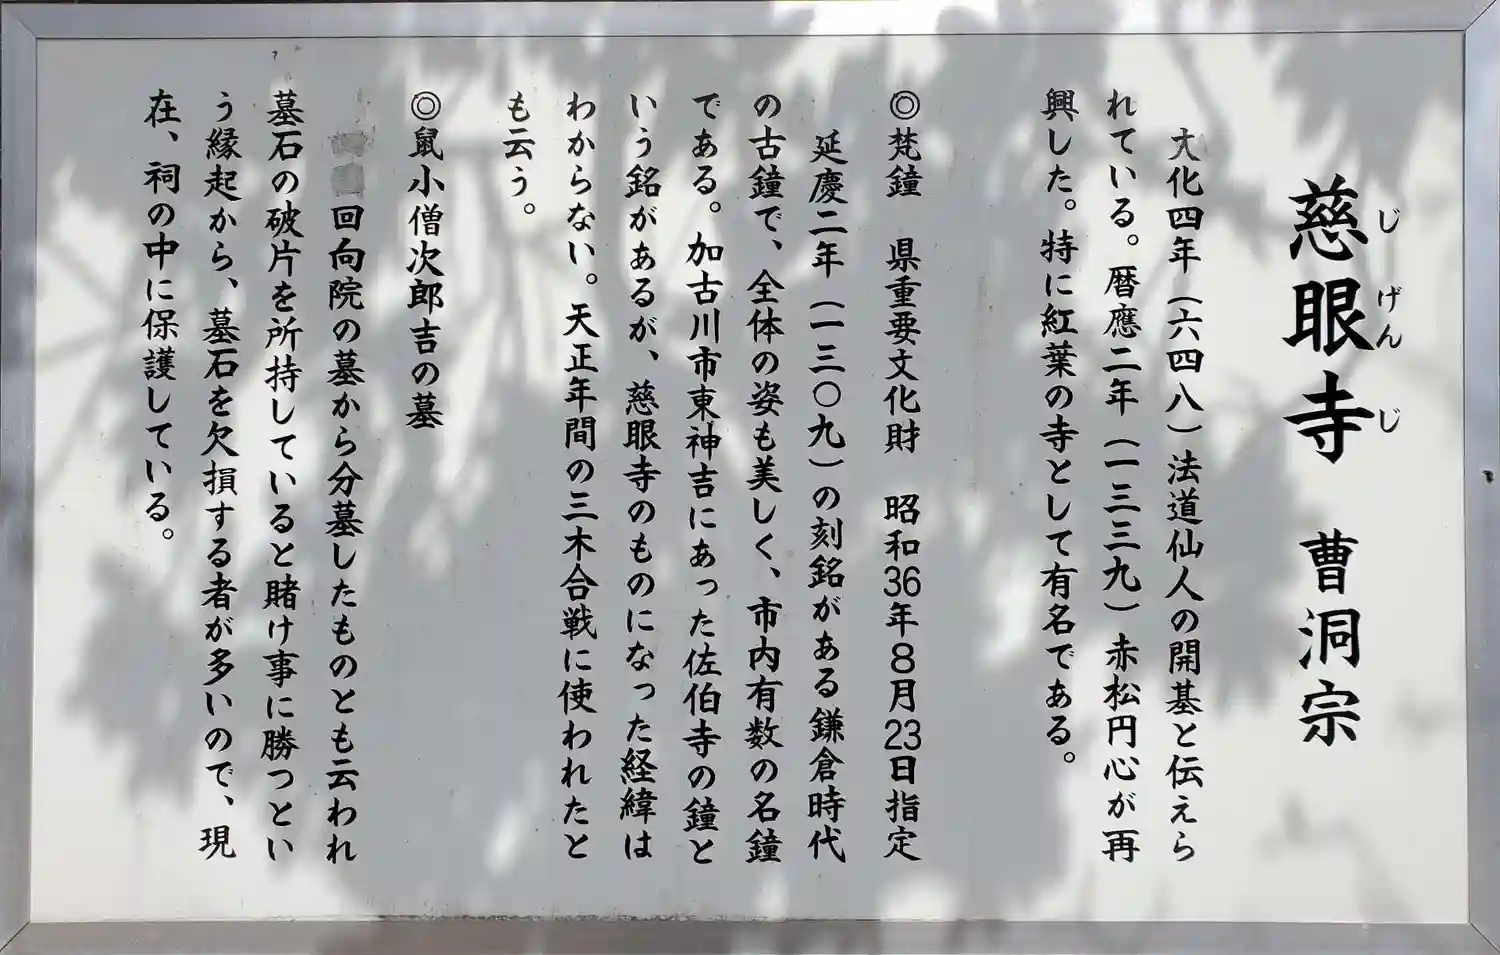 慈眼寺　曹洞宗
じげんじ
大化四年（六四八）法道仙人の開基と伝えら
れている。暦應二年（一三三九）赤松円心が再
興した。特に紅葉の寺として有名である。
◎梵鐘　県重要文化財　昭和36年8月23日指定
延慶二年（一三〇九）の刻銘がある鎌倉時代
の古鐘で、全体の姿も美しく、市内有数の名鐘
である。加古川市東神吉にあった佐伯寺の鐘と
いう銘があるが、慈眼寺のものになった経緯は
わからない。天正年間の三木合戦に使われたと
も云う。
◎鼠小僧次郎吉の墓
回向院の墓から分墓したものとも云われ
墓石の破片を所持していると賭け事に勝つとい
う縁起から、墓石を欠損する者が多いので、現
在、祠の中に保護している。